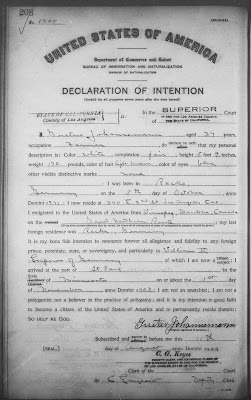 208
No. 1500
ORIGINAL
UNITED STATES OF AMERICA
Department of Commerce and Labor
BUREAU OF IMMIGRATION AND NATURALIZATION
DIVISION OF NATURALIZATION
DECLARATION OF INTENTION
(Invalid for all purposes seven years after the date hereof)
STATE OF CALIFORNIA
County of Los Angeles
In the SUPERIOR Court
I, Gustav Johannemann, aged 27 years,
occupation Farmer, do declare on oath that my personal
description is: Color white, complexion fair, height 5 feet 9 inches,
weight pounds, color of hair light brown, color of eyes
other visible distinctive marks None
I was born in
Germany, on the day of, anno
Domini; I now reside at Los Angeles, Cal.
I emigrated to the United States of America from Winnipeg, Manitoba, Canada
on the vessel; my last
foreign residence was Germany
It is my bona fide intention to renounce forever all allegiance and fidelity to any foreign
prince, potentate, state, or sovereignty, and particularly to William II
Emperor of Germany, of which I am now a subject; I
arrived at the port of St. Paul, in the
State of Minnesota, on or about the 1st day
of November, anno Domini; I am not an anarchist; I am not a
polygamist nor a believer in the practice of polygamy; and it is my intention in good faith
to become a citizen of the United States of America and to permanently reside therein:
SO HELP ME GOD.
Gustav Johannemann
Subscribed and sworn to before me this
[SEAL] day of, anno Domini
C. G. Keyes
Clerk of the Court.
By, Deputy Clerk.